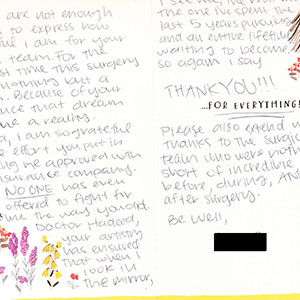 are not enough
to express how
I am for your
team. For the
st time this surgery
nothing but a
. Because of your
ance that dream
me a reality.
a, I am so grateful
e effort you put in
ing me approved with
nsurance company.
NO ONE has even
offered to fight for
me the way you did.
Doctor Hadeed,
your artistry
was ensured
that when I
look in
the mirror,
I see me,
the one I've spent the
last 5 years pursuing
and an entire lifetime
waiting to become
so again I say
THANK YOU!!!
...FOR EVERYTHING!
Please also extend m
thanks to the surgic
team who were noth
short of incredible
before, during, AND
after surgery.
Be well,